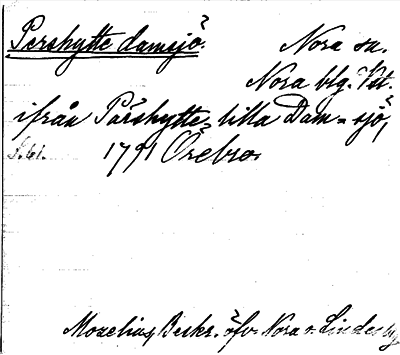 Pershytte damsjö. Nora sn.
Nora blg. Vst.
ifrån Pärshytte- lilla Dam-sjö,
S. 61. 1791 Örebro
Mozelius Beskr. öfv. Nora o. Lindesbg